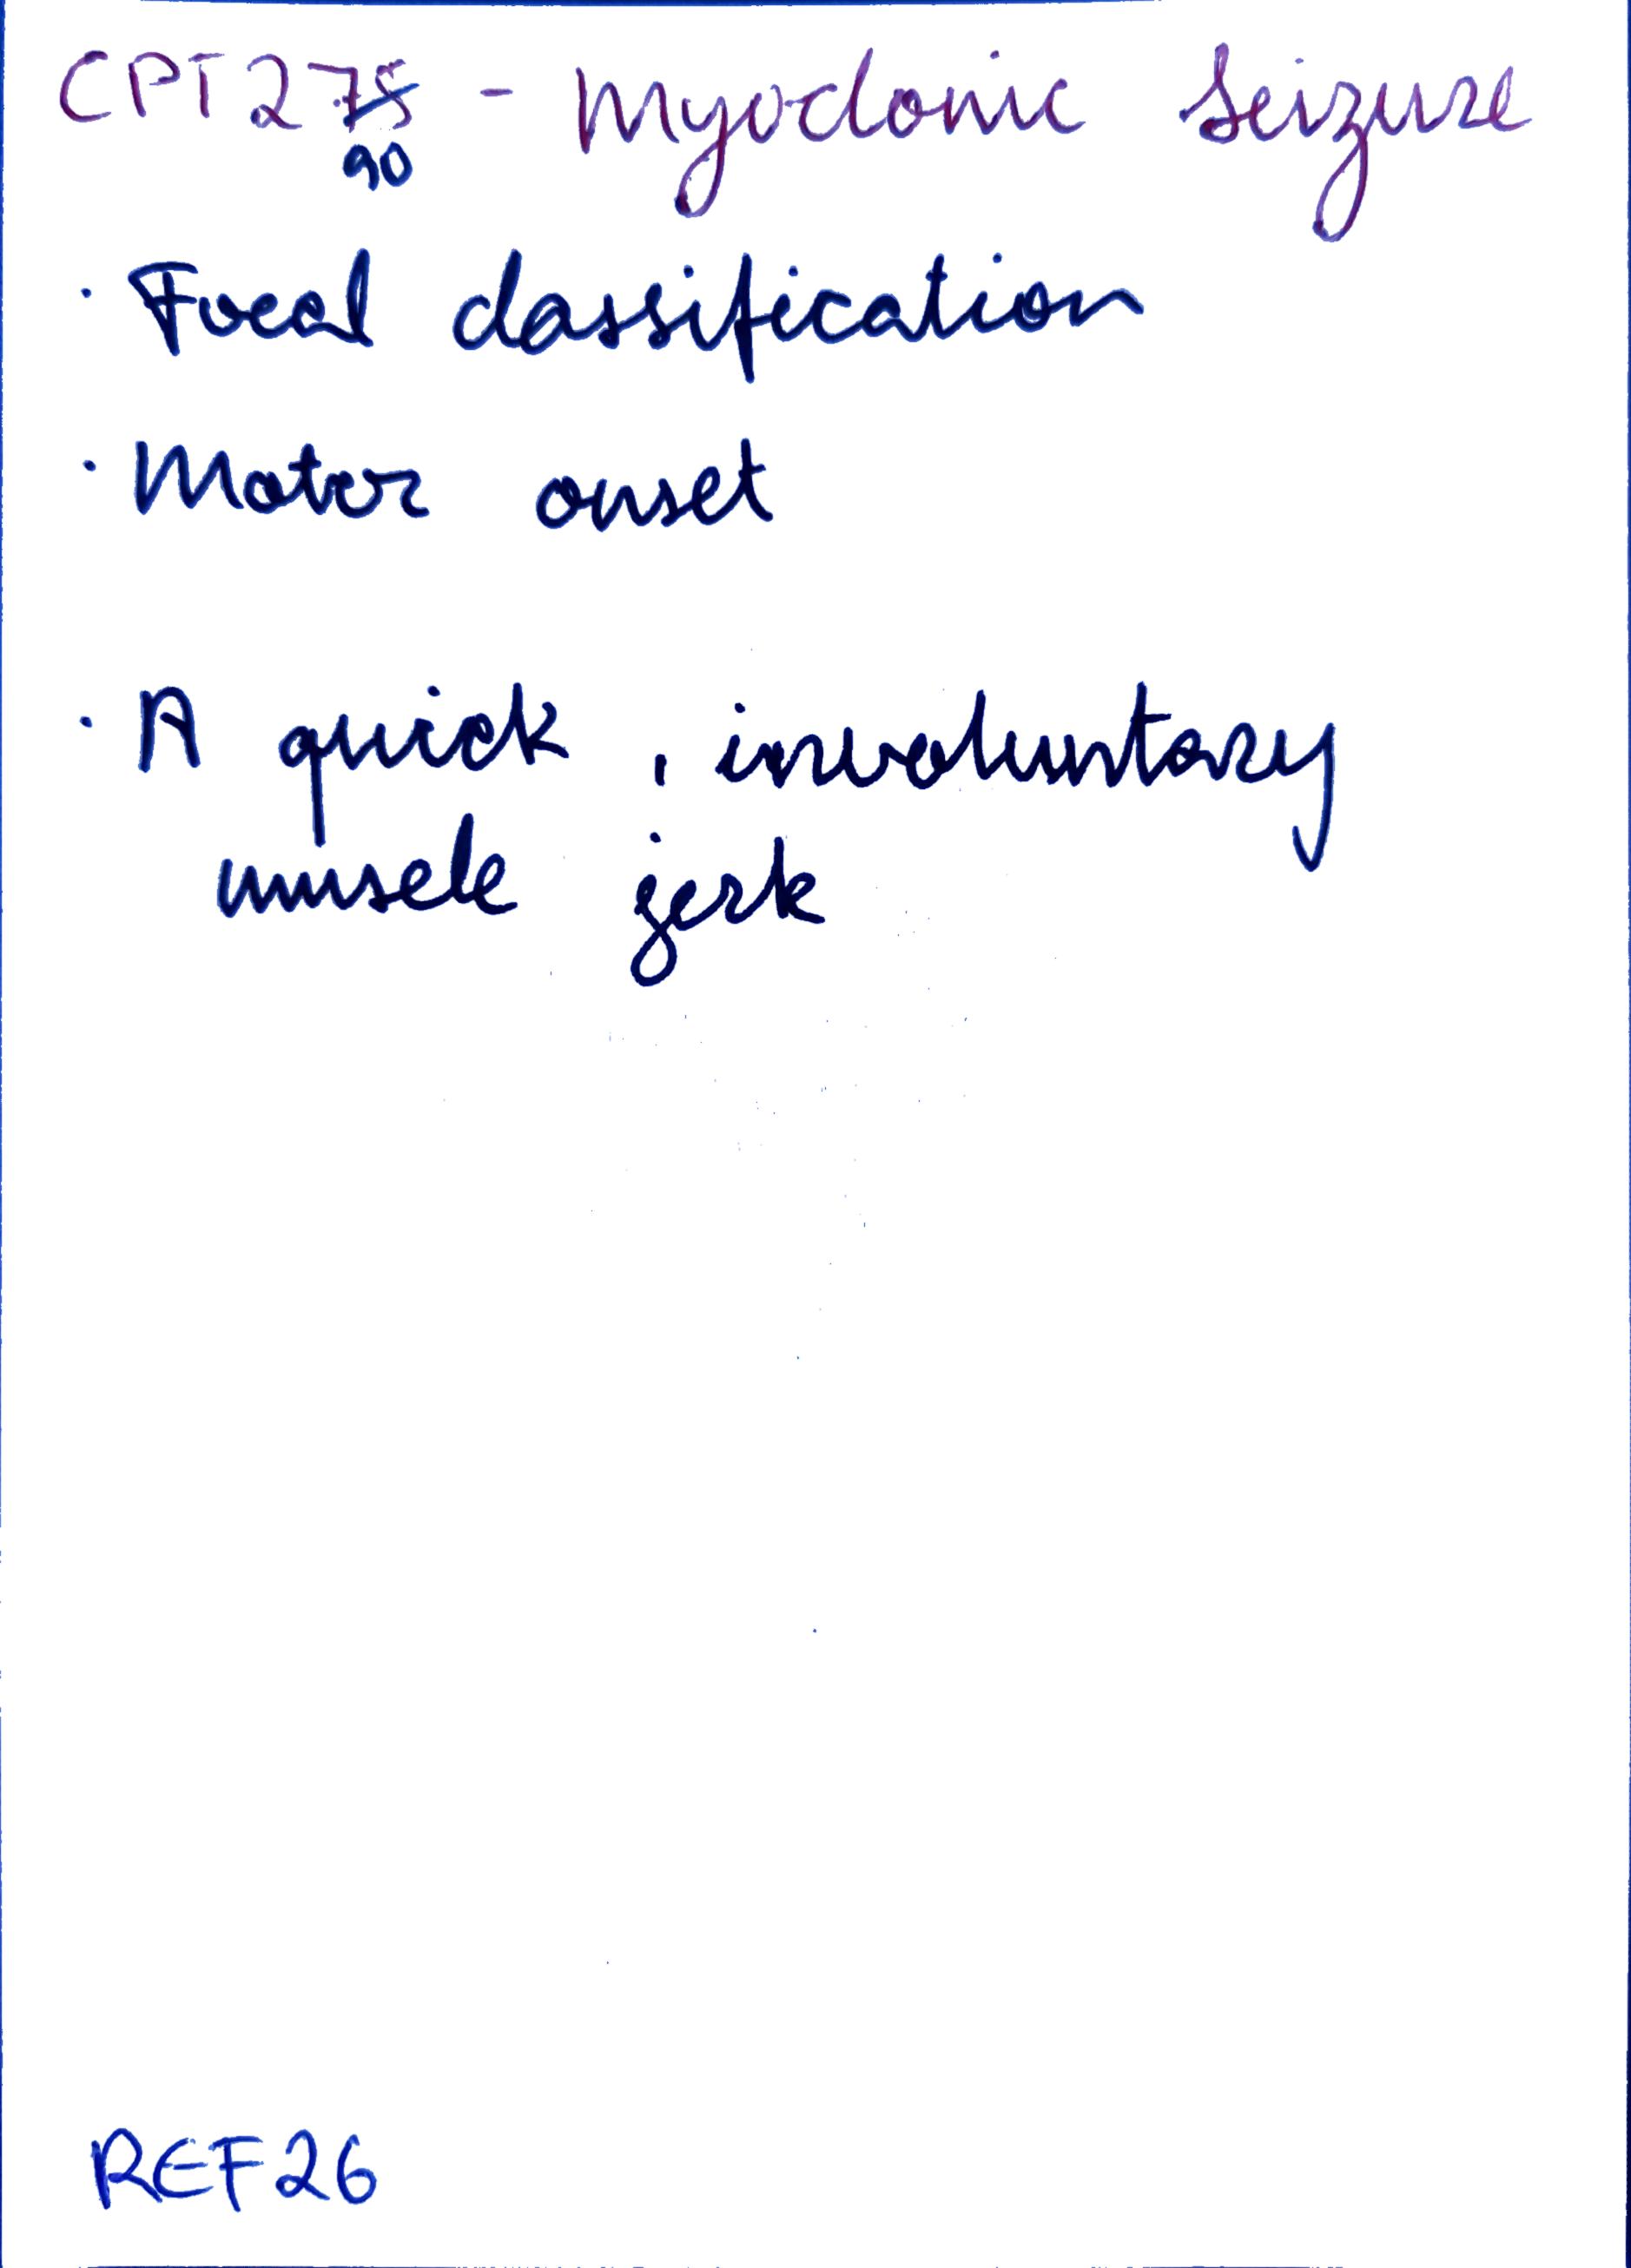 CPT275 - Myoclonic Seizure
90
· Focal classification
· Motor onset
· A quick, involuntary
muscle jerk
REF26